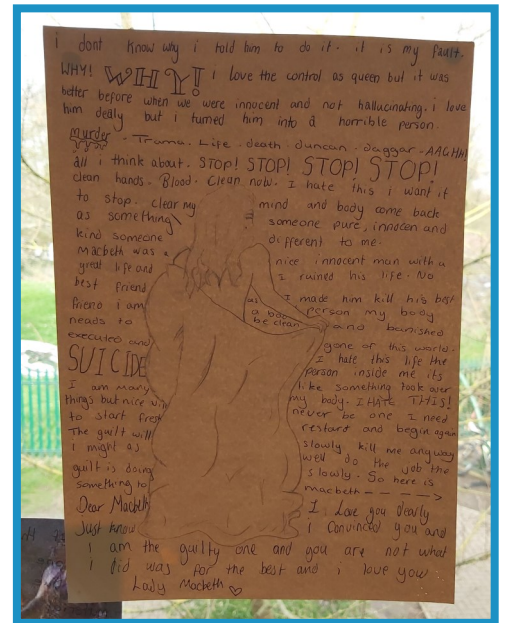 i dont know why i told him to do it. it is my fault.
WHY! WHY! I love the control as queen but it was
better before when we were innocent and not hallucinating. i love
him dealy but i turned him into a horrible person.
murder. Trama. Life. death. duncan. daggar. AAGHH!
all i think about. STOP! STOP! STOP! STOP!
clean hands. Blood. Clean now. I hate this i want it
to stop. clear my mind and body come back
as something someone pure, innocen and
kind someone different to me.
Macbeth was a nice innocent man with a
great life and I ruined his life. No
best friend I made him kill his best
friend i am as person my body
needs to a body be clean and banished
executed and gone of this world.
SUICIDE I hate this life the
person inside me its
I am many like something took over
things but nice my body. I HATE THIS!
to start fresh never be one I need
The guilt will restart and begin again
I might as slowly kill me anyway
guilt is doing well do the job the
something to slowly. So here is
macbeth
Dear Macbeth I Love you dearly
Just know I convinced you and
i am the guilty one and you are not what
i did was for the best and i love you
Lady Macbeth